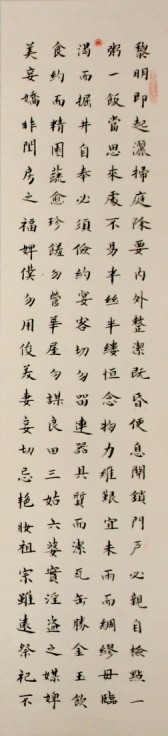 黎明即起灑掃庭除要内外整潔既昏便息關鎖門戶必親自檢點一
粥一飯當思來處不易半絲半縷恒念物力維艱宜未雨而綢繆毋臨
渴而掘井自奉必須儉約宴客切勿留連器具質而潔瓦缶勝金玉飲
食約而精園蔬愈珍饈勿營華屋勿謀良田三姑六婆實淫盜之媒婢
美妾嬌非閨房之福婢僕勿用俊美妻妾切忌艳妝祖宗雖遠祭祀不